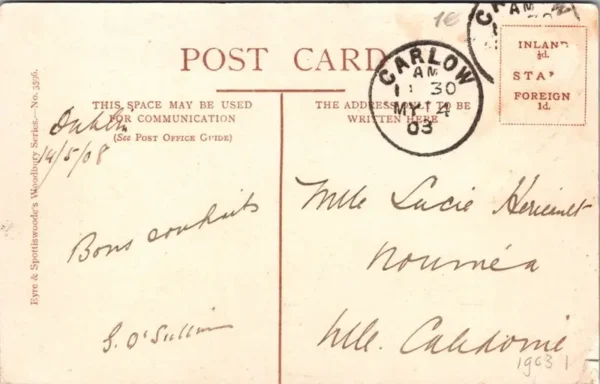 1€
POST CARD
CARLOW
AM
11 30
MY 14
03
AM
INLAND
½d.
STA
FOREIGN
1d.
THIS SPACE MAY BE USED
FOR COMMUNICATION
(See POST OFFICE GUIDE)
THE ADDRESS ONLY TO BE
WRITTEN HERE
Eyre & Spottiswoode's Woodbury Series.—No. 3596.
Dublin
14/5/08
Bons souhaits
S. O'Sullivan
Mlle Lucie
Nouméa
Nlle. Calédonie
1903